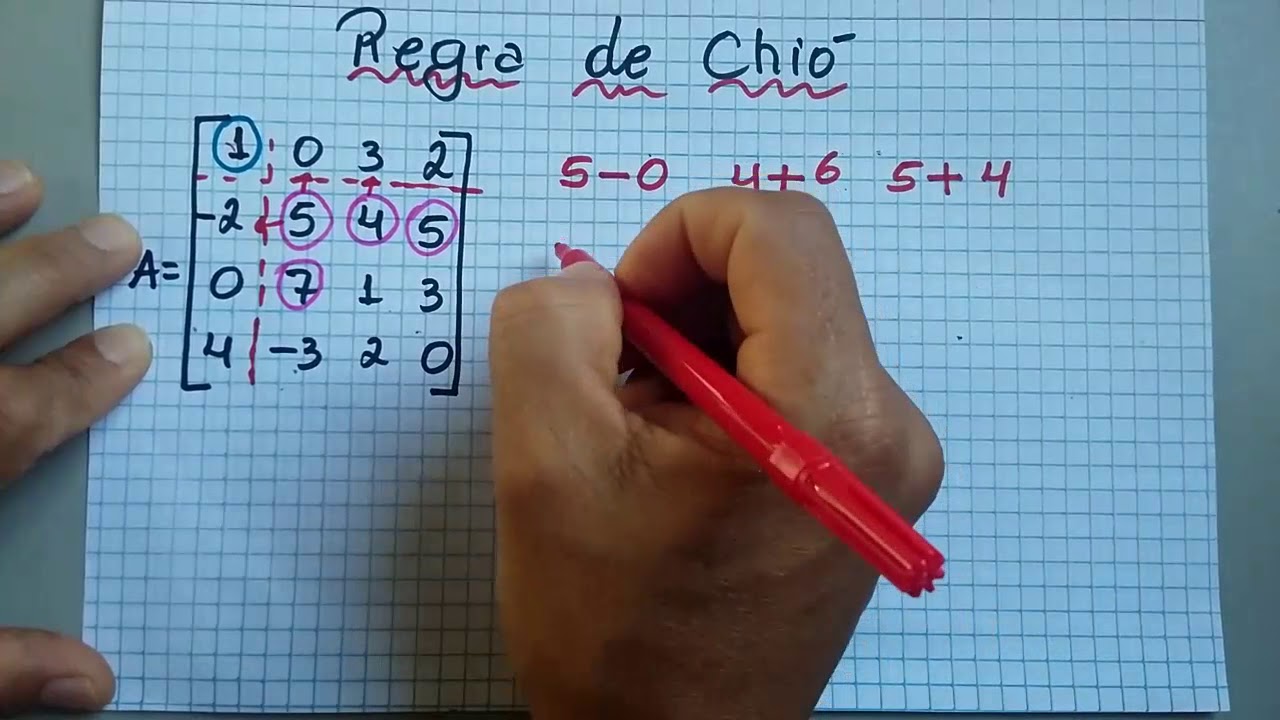 Regra de Chió
1 0 3 2
5-0 4+6 5+4
-2 5 4 5
A= 0 7 1 3
4 -3 2 0